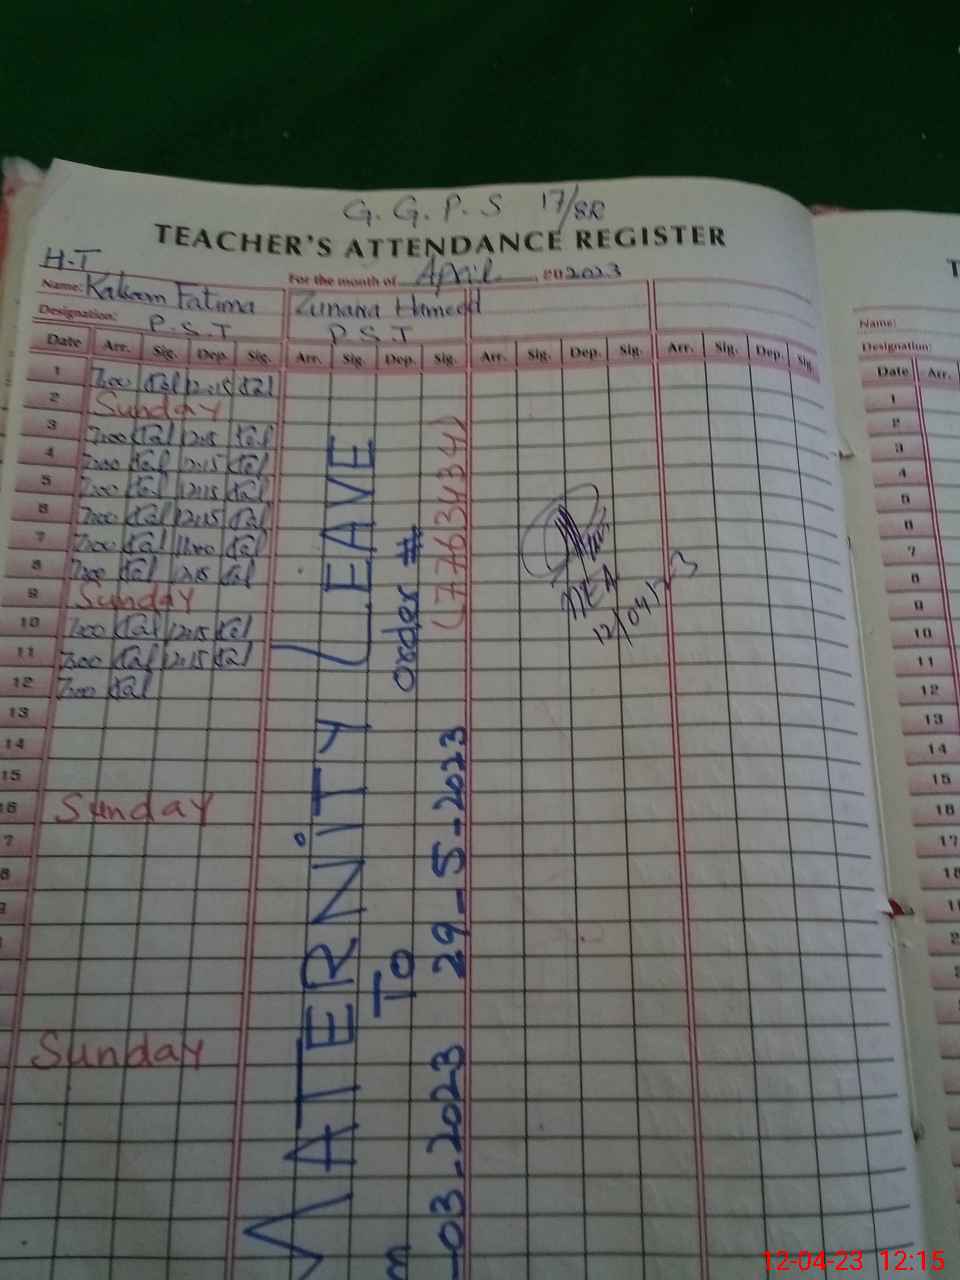 G. G. P. S 17/8R
TEACHER'S ATTENDANCE REGISTER
H.T
For the month of April 2023
Name: Kalsoom Fatima Zunaira Hameed
Designation: P.S.T P.S.T
Date Arr. Sig. Dep. Sig. Arr. Sig. Dep. Sig. Arr. Sig. Dep. Sig. Arr. Sig. Dep. Sig.
1 7:00 Kal 12:15 Kal
2 Sunday
3 7:00 Kal 12:15 Kal
4 7:00 Kal 12:15 Kal
5 7:00 Kal 12:15 Kal
6 7:00 Kal 12:15 Kal
7 7:00 Kal 11:00 Kal
8 7:00 Kal 12:15 Kal
9 Sunday
10 7:00 Kal 12:15 Kal
11 7:00 Kal 12:15 Kal
12 7:00 Kal
13
14
15
16 Sunday
Sunday
MATERNITY LEAVE
order #
(7763434)
03-2023 To 29-5-2023
12/04/23
Name:
Designation:
Date Arr.
1
2
3
4
5
6
7
8
9
10
11
12
13
14
15
16
17
18
12-04-23 12:15